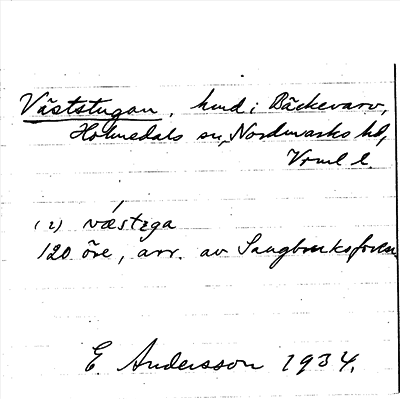 Väststugan, hmd i Bäckevarv,
Holmedals sn, Nordmarks hd,
Vrml l.
(2) vä́stega
120 öre, arr. av
E. Andersson 1934.